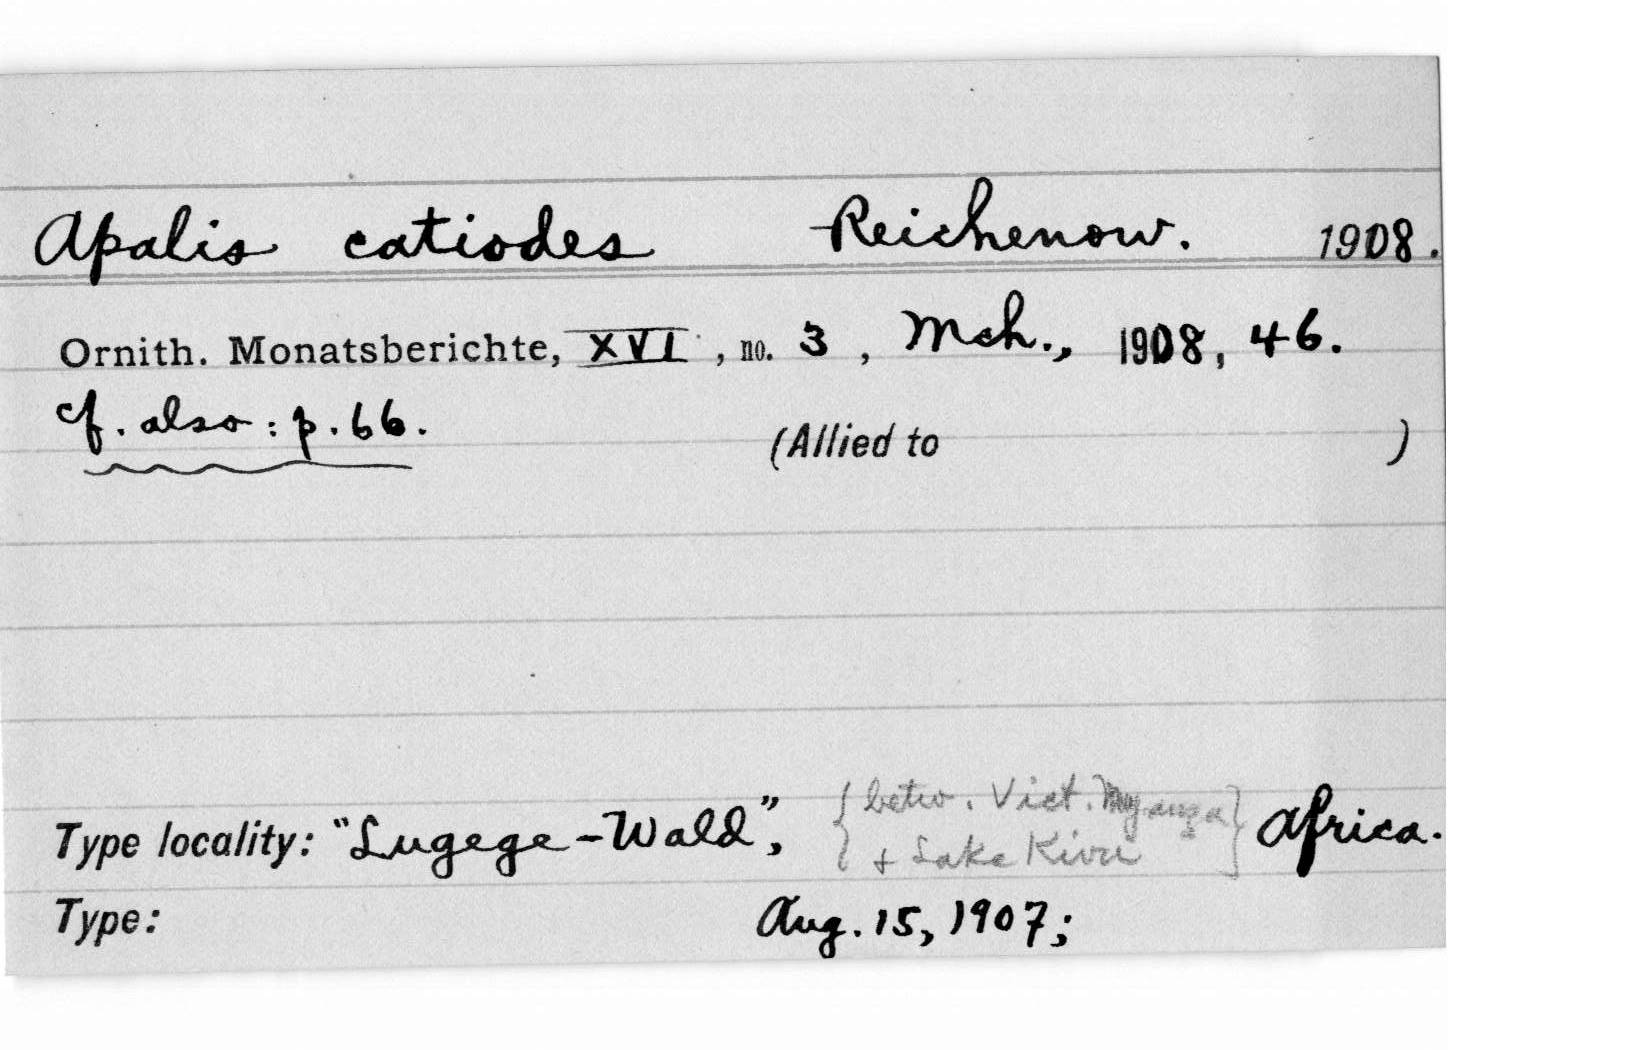 Apalis catiodes Reichenow. 1908.
Ornith. Monatsberichte, XVI, no. 3, Mch., 1908, 46.
cf. also: p. 66.
(Allied to )
{betw. Vict. Nyanza
Type locality: "Lugege-Wald", + Lake Kivu} Africa.
Type: Aug. 15, 1907;